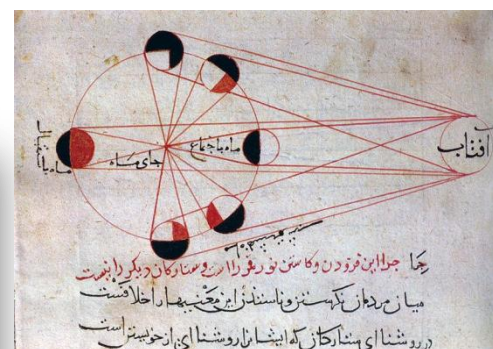 افتاب
ماه باجتماع
جای ماه
ماه باستقبال
چرا این فزودن و کاستن نور قمر را است و ستارکان دیکر را نیست
میان مردمان نکرستن و ناسندن این معنیها را خلافست
در روشنا ای ستارکان که ایشانرا روشنا ای از خویشتن است